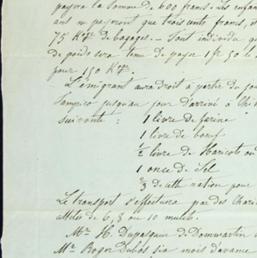 payera la somme de 600 francs. Les enfants
ans ne payeront que trois cents francs, et
75 K de bagages. - Tout individu q
de poids sera tenu de payer 1 fr 50 le
pour 150 K
L'émigrant aura droit à partir de son
Tampico jusqu'au jour d'arrivée à
suivante : 1 livre de farine
1 livre de bœuf
½ livre de Haricots ou
1 once de Sel
⅔ de cette ration pour
Le transport s'effectura par des Chario
attelés de 6, 8 ou 10 mulets.
Mr. H. Dupasquier de Dommartin
Mr. Roger Dubos six mois d'avance